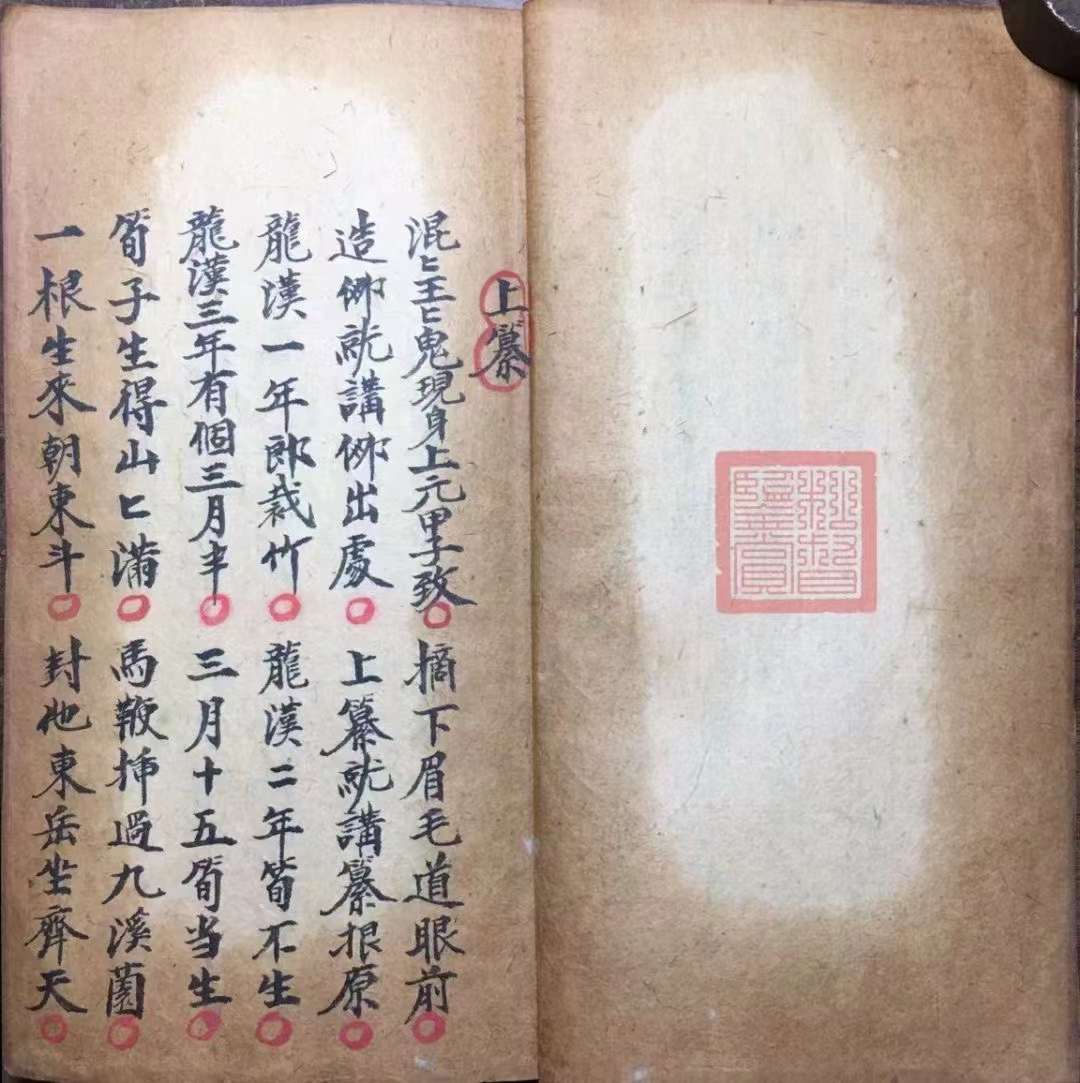 上纂
混匕王匕鬼現身上元甲子致○摘下眉毛道眼前○
造就講出處○上纂就講纂根原○
龍漢一年郎栽竹○龍漢二年筍不生○
龍漢三年有個三月半○三月十五筍当生○
筍子生得山匕滿○馬鞭揷過九溪薗○
一根生來朝東斗○封他東岳坐齊天○